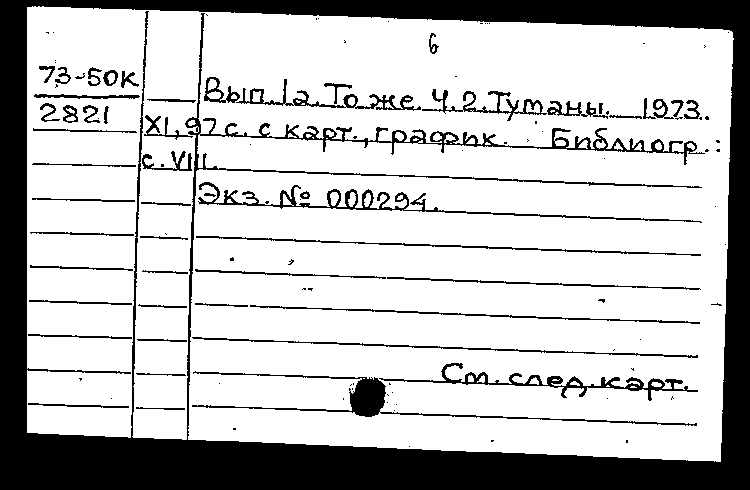 6
73-50к
2821
Вып. 1а. То же. Ч. 2. Туманы. 1973.
XI, 97 с. с карт., график. Библиогр.:
с. VIII.
Экз. № 000294.
См. след. карт.